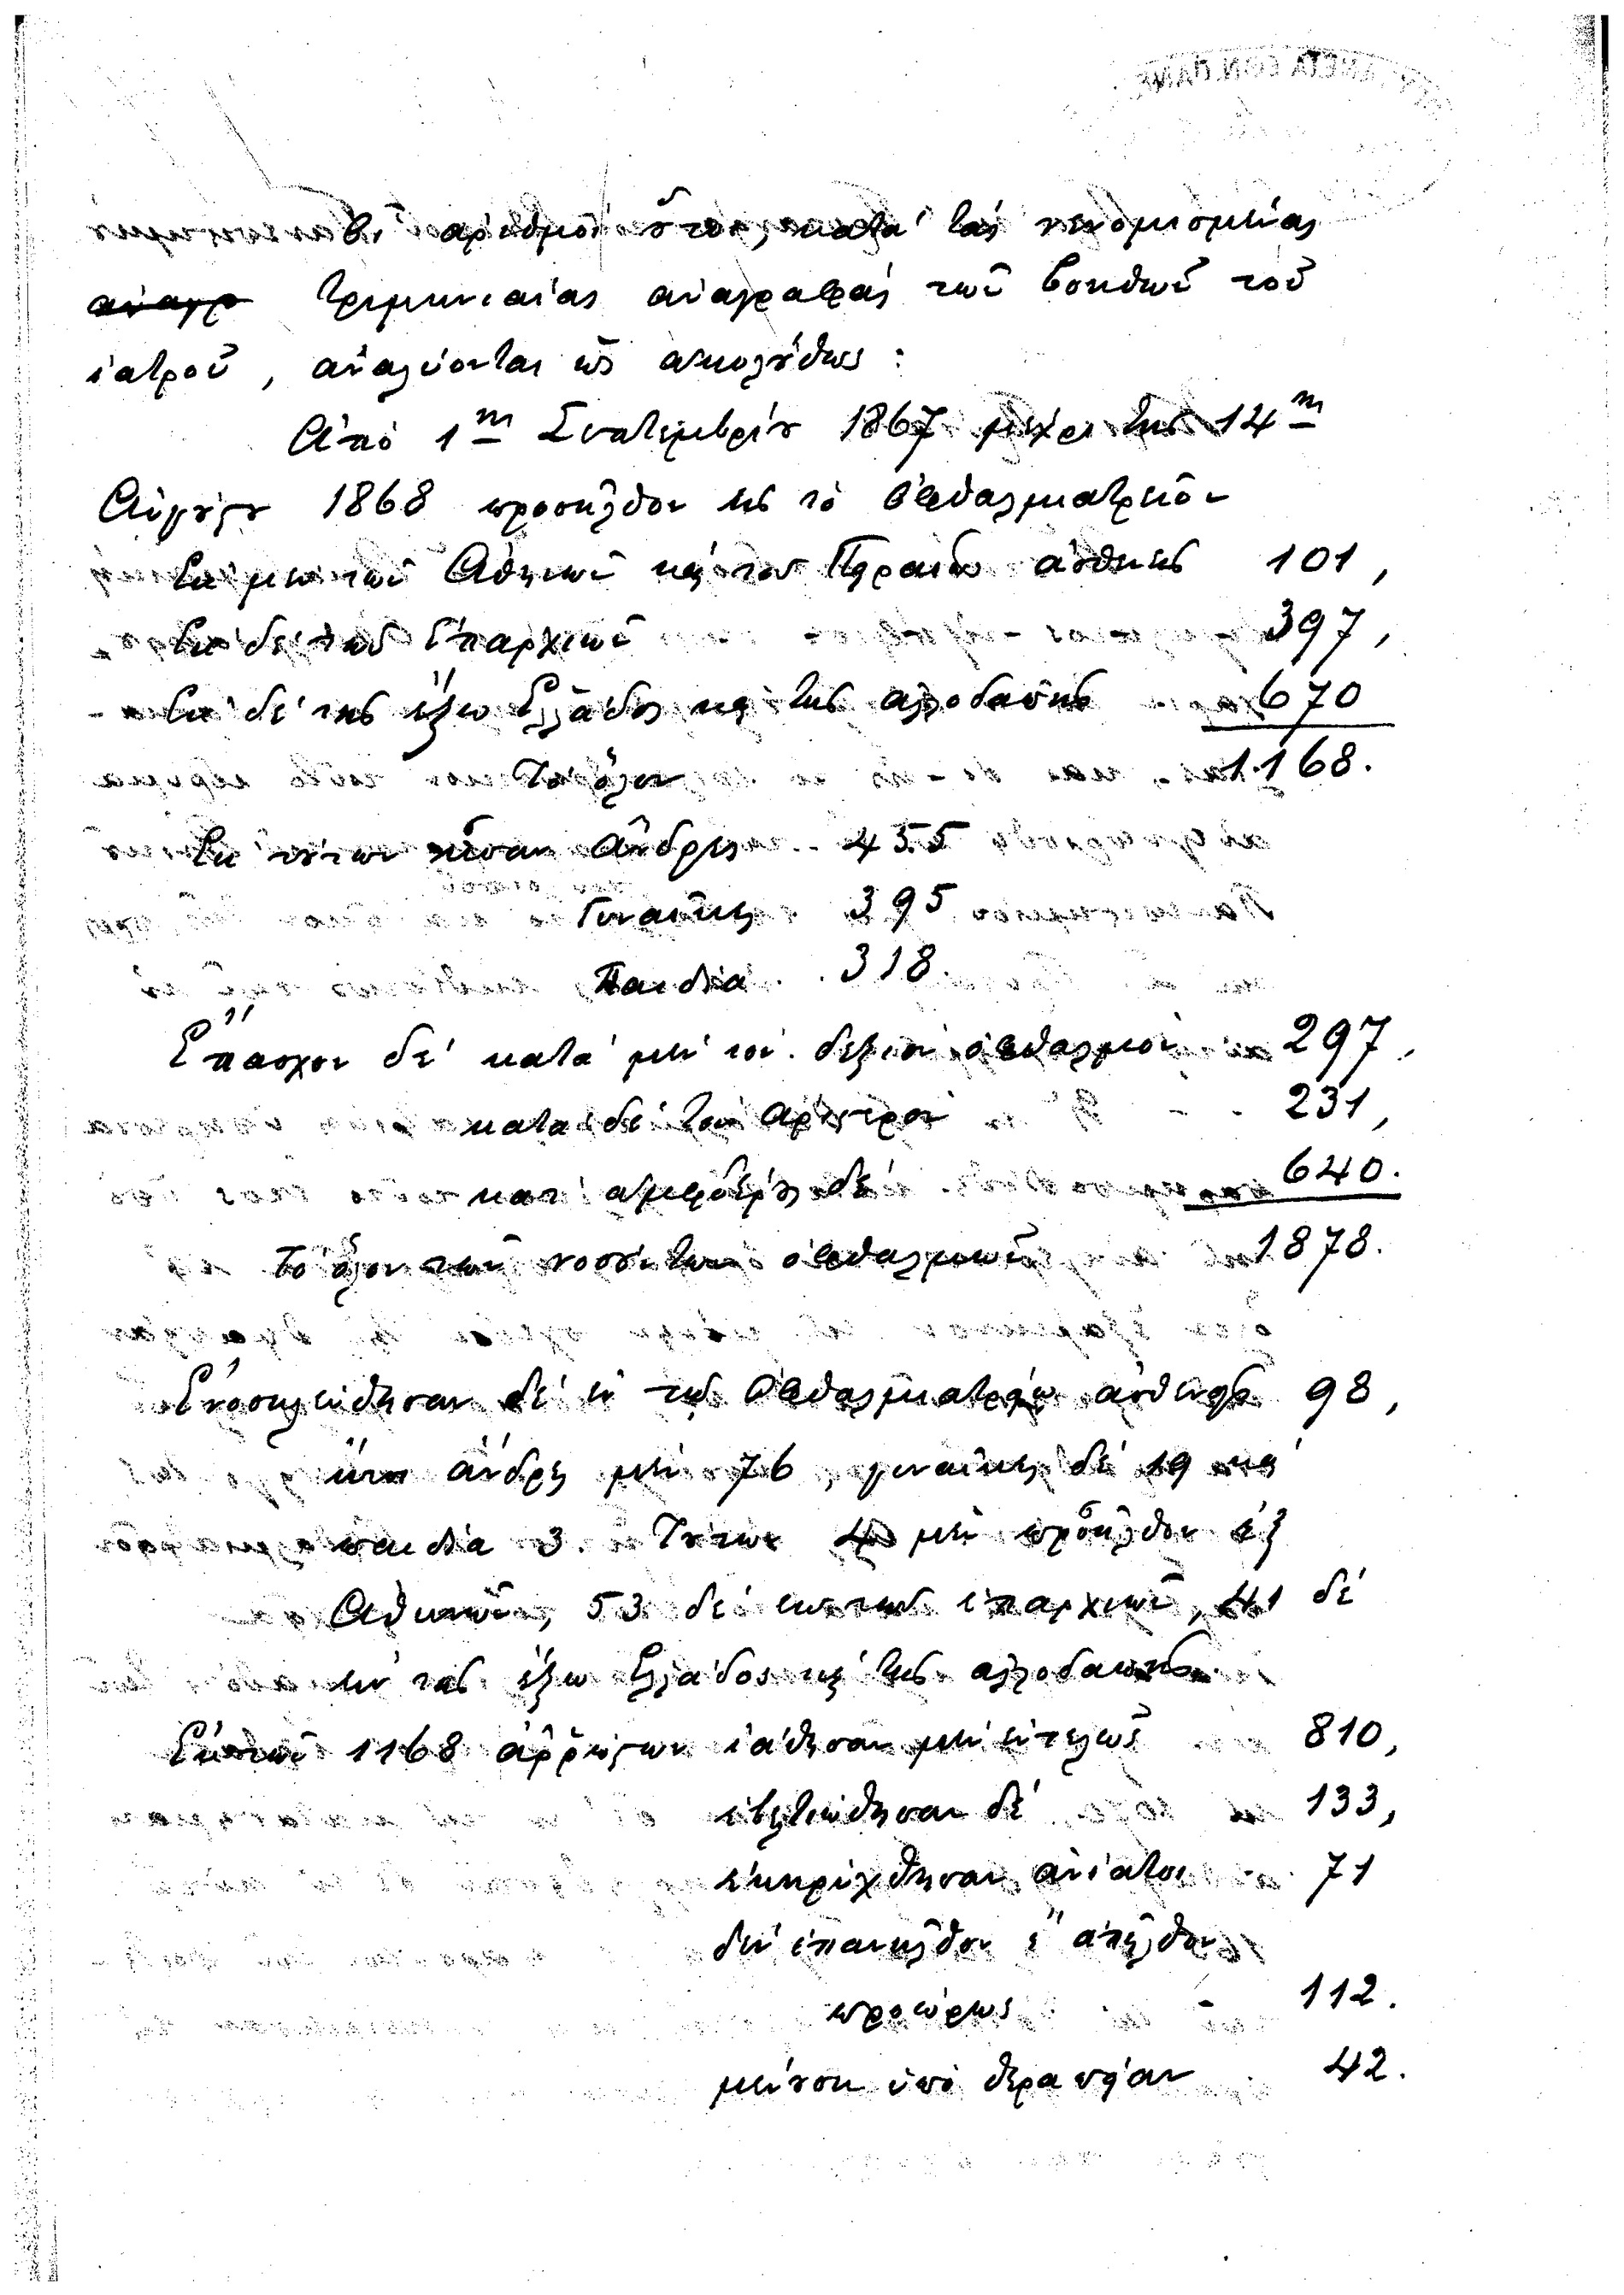 Οἱ ἀριθμοὶ οὗτοι, κατὰ τὰς νενομισμένας
ἀναγρ τριμηνιαίας ἀναγραφὰς τῶν βοηθῶν τοῦ
ἰατροῦ, ἀναλύονται ὡς ἀκολούθως:
Ἀπὸ 1ης Σεπτεμβρίου 1867 μέχρι τῆς 14ης
Αὐγούστου 1868 προσῆλθον εἰς τὸ Ὀφθαλμιατρεῖον
Ἐκ μὲν τῶν Ἀθηνῶν καὶ τοῦ Πειραιῶς ἀσθενεῖς 101,
Ἐκ δὲ τῶν ἐπαρχιῶν 397,
Ἐκ δὲ τῆς ἔξω Ἑλλάδος καὶ τῆς ἀλλοδαπῆς 670
Τὸ ὅλον 1168.
Ἐκ τούτων ἦσαν Ἄνδρες 455
Γυναῖκες 395
Παιδία . . 318.
Ἔπασχον δὲ κατὰ μὲν τὸν δεξιὸν ὀφθαλμὸν 297,
κατὰ δὲ τὸν ἀριστερὸν 231,
κατ' ἀμφοτέρους δὲ 640.
Τὸ ὅλον τῶν νοσούντων ὀφθαλμῶν 1878.
Ἐνοσηλεύθησαν δὲ ἐν τῷ Ὀφθαλμιατρείῳ ἀσθενεῖς 98,
ἤτοι ἄνδρες μὲν 76, γυναῖκες δὲ 19 καὶ
παιδία 3. Τούτων 4 μὲν προσῆλθον ἐξ
Ἀθηνῶν, 53 δὲ ἐκ τῶν ἐπαρχιῶν, 41 δὲ
ἐκ τῆς ἔξω Ἑλλάδος καὶ τῆς ἀλλοδαπῆς.
Ἐκ τῶν 1168 ἀῤῥώστων ἰάθησαν μὲν ἐντελῶς 810,
ἐβελτιώθησαν δὲ 133,
ἐκηρύχθησαν ἀνίατοι 71
δὲν ἐπανῆλθον ἢ ἀπῆλθον
προώρως 112.
μένουσι ὑπὸ θεραπείαν 42.